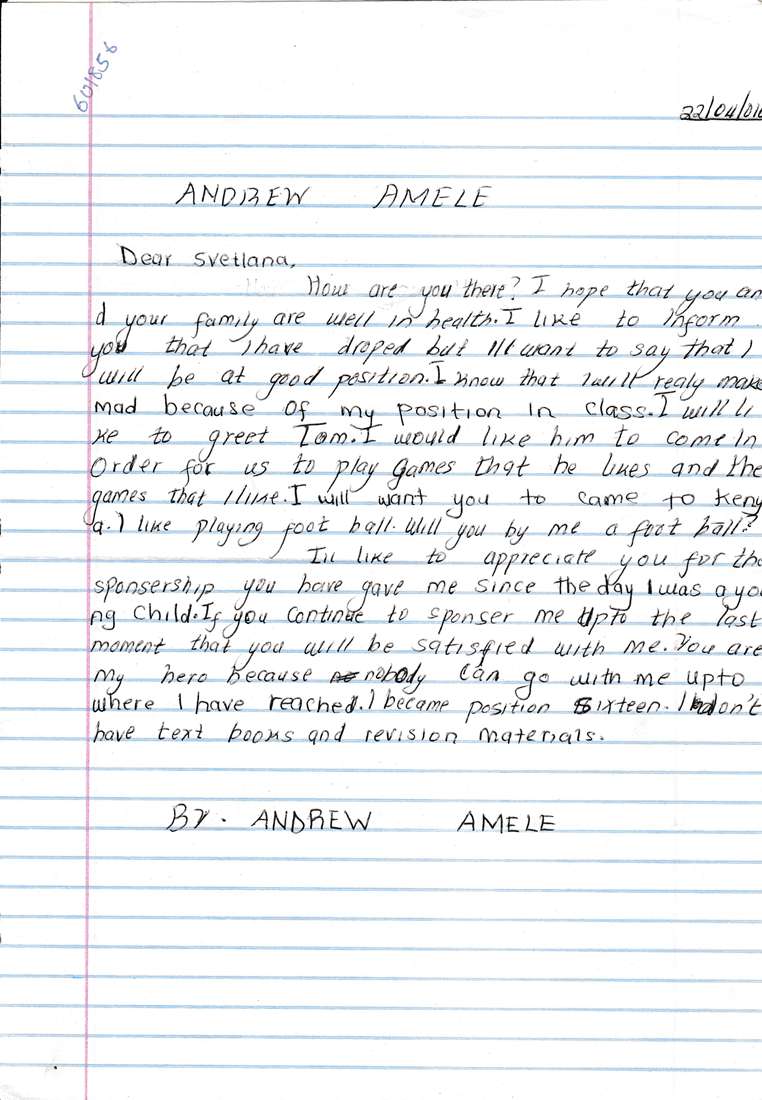 601856
22/04/016
ANDREW AMELE
Dear Svetlana,
How are you there? I hope that you an
d your family are well in health. I like to inform
you that I have droped but I'll want to say that I
will be at good position. I know that I will realy make
mad because of my position in class. I will li
ke to greet Tom. I would like him to come in
Order for us to play games that he likes and the
games that I like. I will want you to came to Keny
a. I like playing foot ball. Will you by me a foot ball?
I'll like to appreciate you for the
sponsership you have gave me since the day I was a yo
ng child. If you continue to sponser me upto the last
moment that you will be satisfied with me. You are
my hero because nobody can go with me upto
where I have reached. I became position sixteen. I don't
have text books and revision materials.
BY. ANDREW AMELE